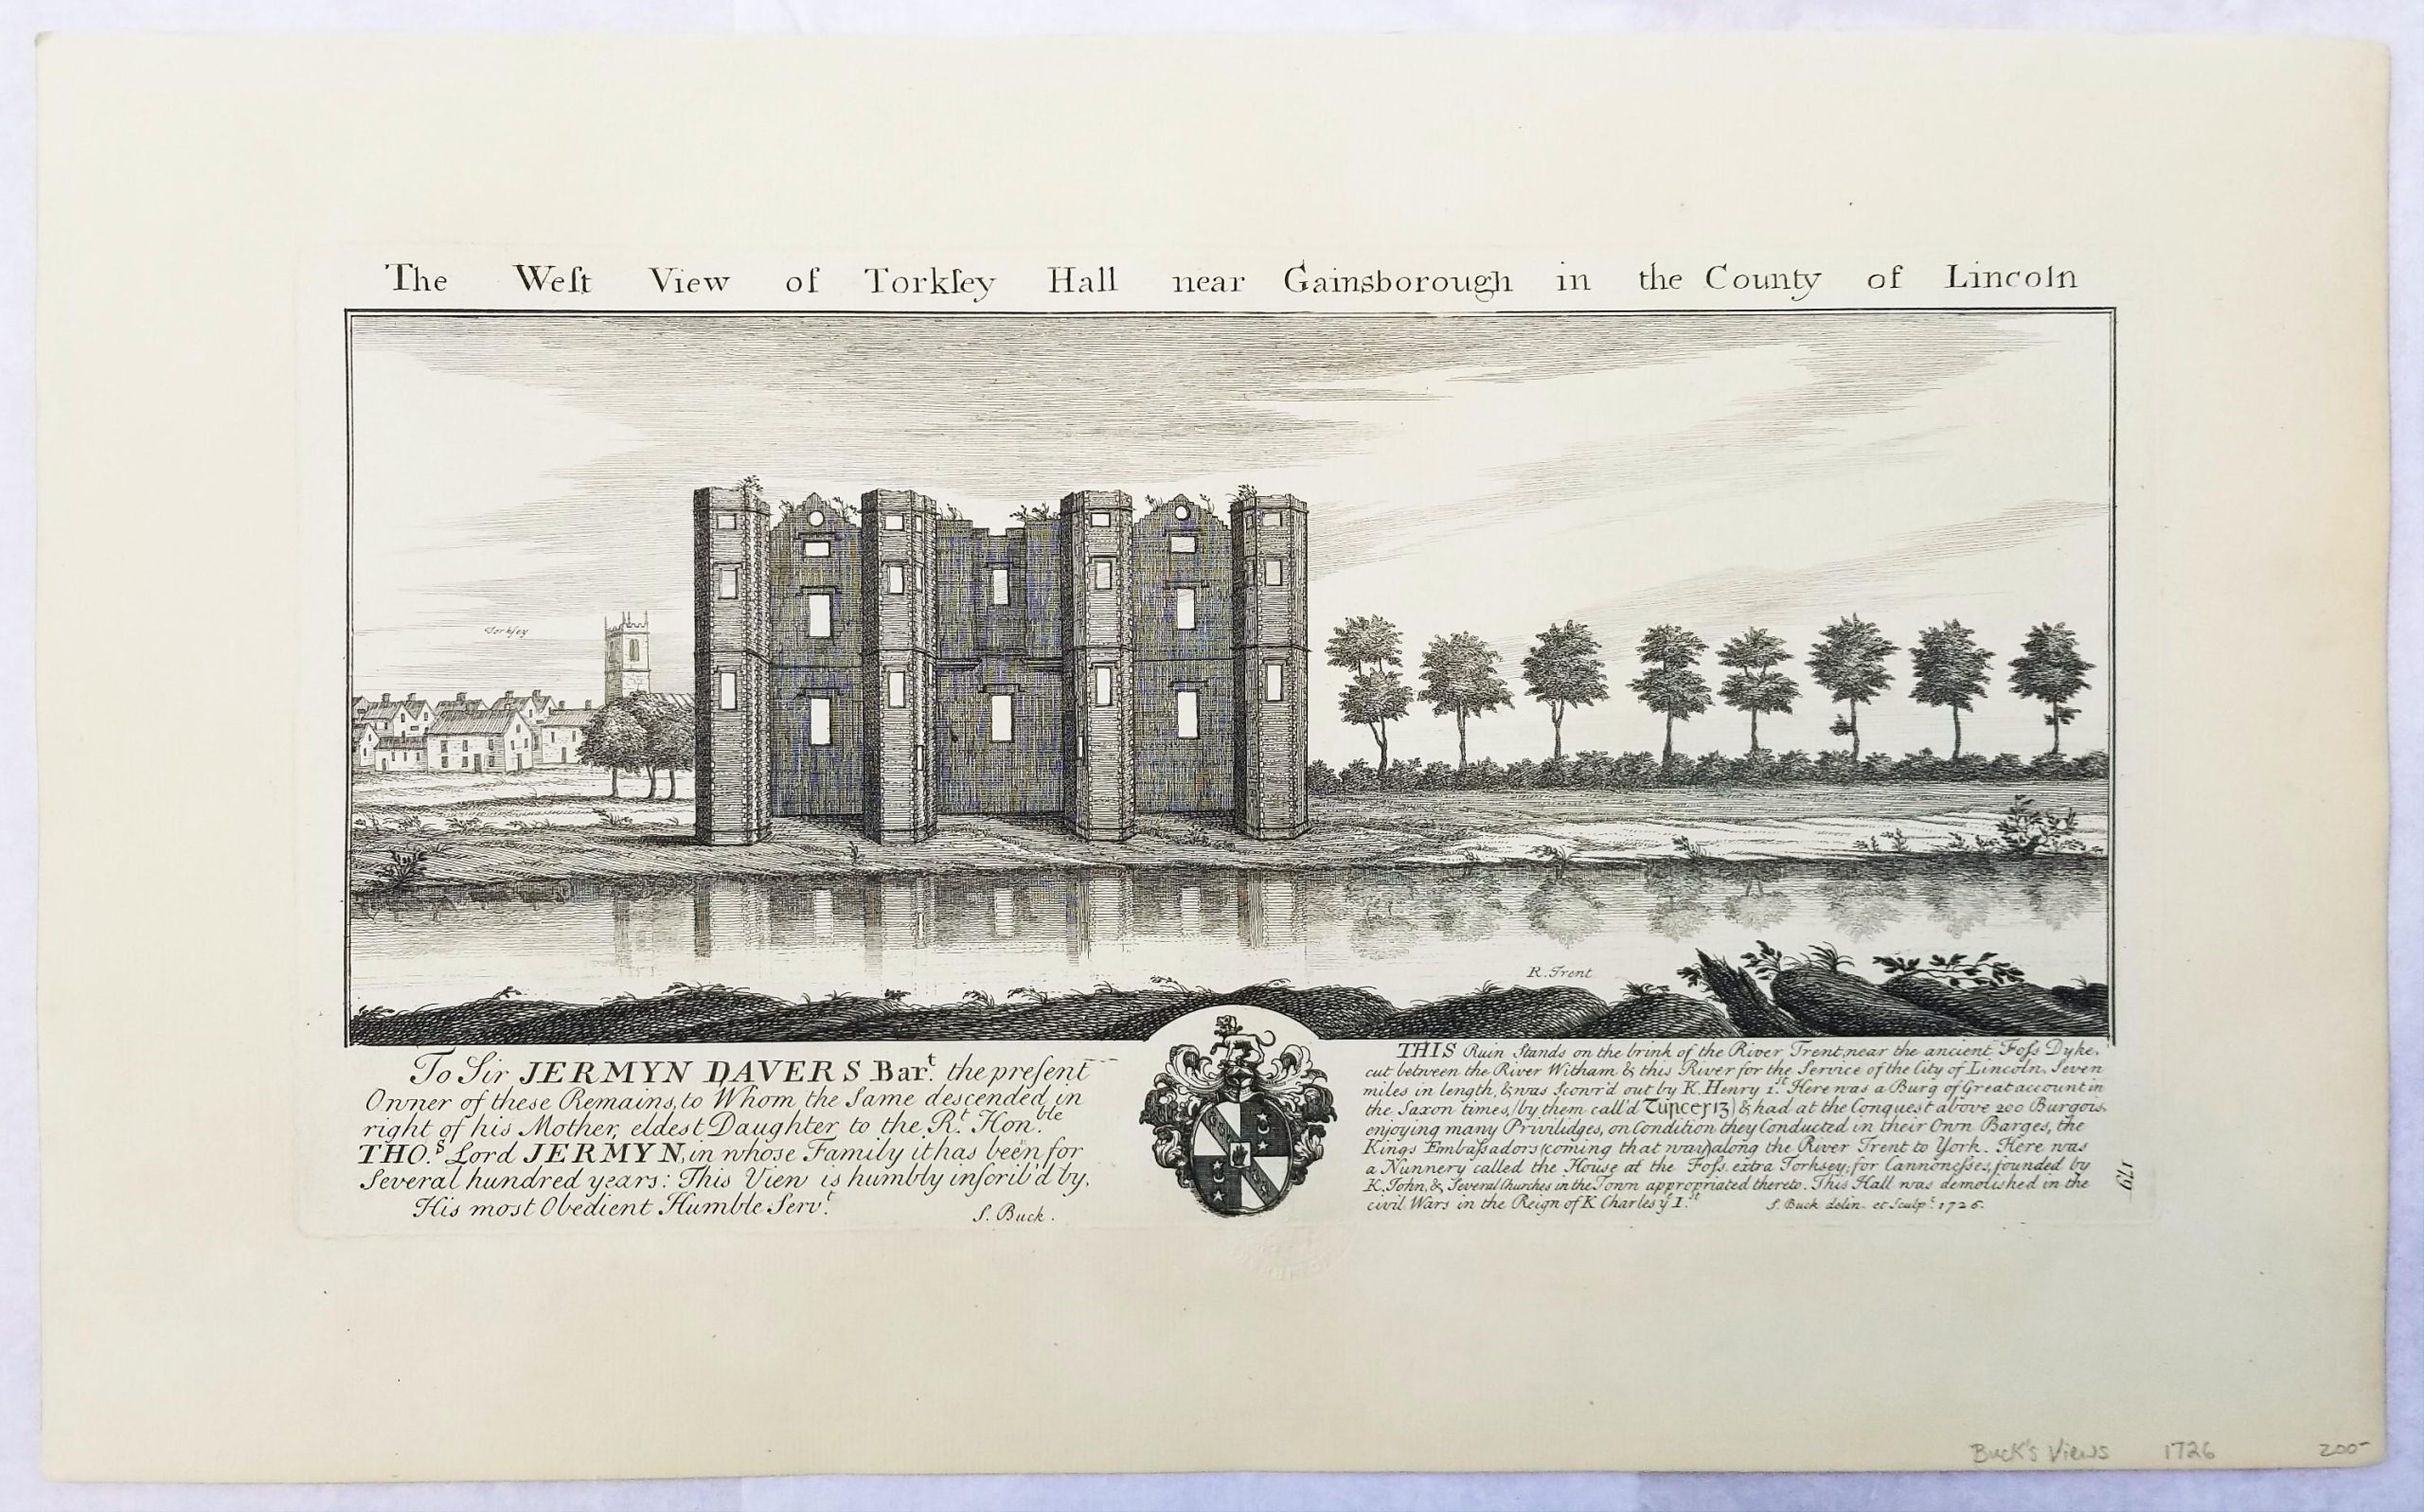 The Weſt View of Torkſey Hall near Gainsborough in the County of Lincoln
Torkſey
R. Trent
To Sir JERMYN DAVERS Barᵗ. the preſent
Owner of these Remains, to Whom the Same descended in
right of his Mother, eldest Daughter to the Rᵗ. Honᵇˡᵉ
THOˢ. Lord JERMYN, in whose Family it has been for
Several hundred years: This View is humbly inſcrib'd by,
His most Obedient Humble Servᵗ.
S. Buck.
THIS Ruin Stands on the brink of the River Trent, near the ancient Foſs Dyke,
cut between the River Witham & this River for the Service of the City of Lincoln, Seven
miles in length, & was Scowr'd out by K. Henry 1ˢᵗ. Here was a Burg of Great account in
the Saxon times, (by them call'd) & had at the Conquest above 200 Burgois,
enjoying many Privilidges, on Condition they Conducted in their Own Barges, the
Kings Embaſsadors (coming that way) along the River Trent to York. Here was
a Nunnery called the House at the Foſs, extra Torksey, for Cannoneſses, founded by
K. John, & Several Churches in the Town appropriated thereto. This Hall was demolished in the
civil Wars in the Reign of K Charles yᵉ Iˢᵗ.
S. Buck delin. et Sculpᵗ. 1726.
179
Buck's Views 1726 200-